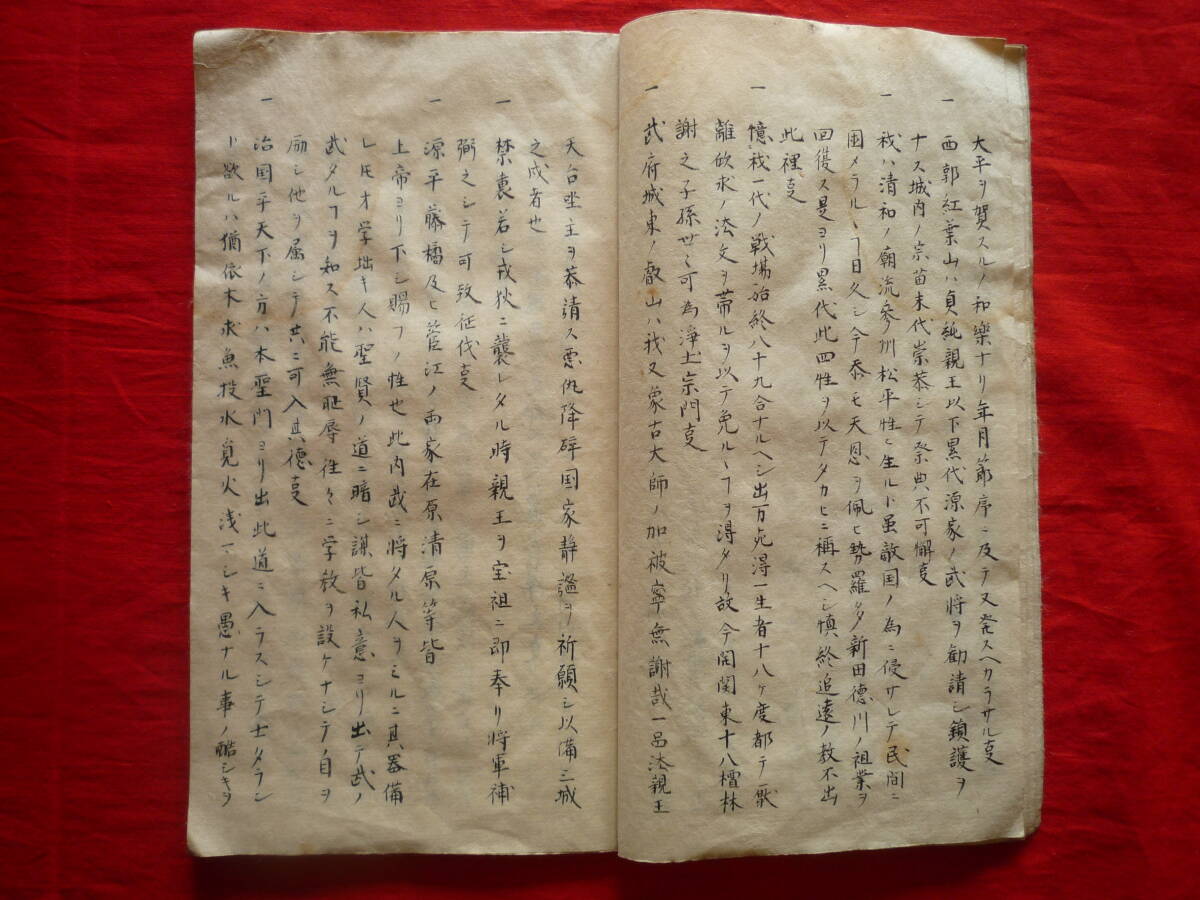 大平ヲ賀スルノ和樂ナリ年月節序ニ及テ又発スヘカラサル㕝
一 西郭紅葉山ハ貞純親王以下累代源家ノ武将ヲ勧請シ鎮護ヲ
ナス城内ノ宗苗末代崇恭シテ祭典不可懈㕝
一 我ハ清和ノ廟流参州松平性ヒ生ルト虽敵国ノ為ニ侵サレテ民間ニ
困メラルヽヿ日久シ今忝モ天恩ヲ佩ヒ勢羅多新田徳川ノ祖業ヲ
回復ス是ヨリ累代此四性ヲ以テタカヒニ稱スヘシ慎終追遠ノ教不出
此裡㕝
一 憶我一代ノ戦場始終八十九合ナルヘシ出万死得一生者十八ケ度都テ厭
離欣求ノ法文ヲ帯ルヲ以テ免ルヽヿヲ得タリ故今開関東十八檀林
謝之子孫世々可為浄土宗門㕝
一 武府城東ノ叡山ハ我又象古大師ノ加被寧無謝哉一品法親王
天台坐主ヲ恭請ス悪仇降碎国家静謐ヲ祈願シ以備三城
之戍者也
一 禁裏若シ戎狄ニ襲レタル時親王ヲ宝祖ニ即奉リ将軍補
弼之シテ可致征伐㕝
一 源平藤橘及ヒ菅江ノ両家在原清原等皆
上帝ヨリ下シ賜フノ性也此内武ニ将タル人ヲミルニ其器備
レ𪜈才学拙キ人ハ聖賢ノ道ニ暗シ謀皆私意ヨリ出テ武ノ
武タルヿヲ知ス不能無耻辱往々ニ学教ヲ設ケナシテノ自ヲ
励シ他ヲ属シテ共ニ可入其徳㕝
一 治国平天下ノ方ハ本聖門ヨリ出此道ニ入ラスシテ士タラン
ト欲ルハ猶依木求魚投水覓火浅マシキ愚ナル事ノ酷シキヲ